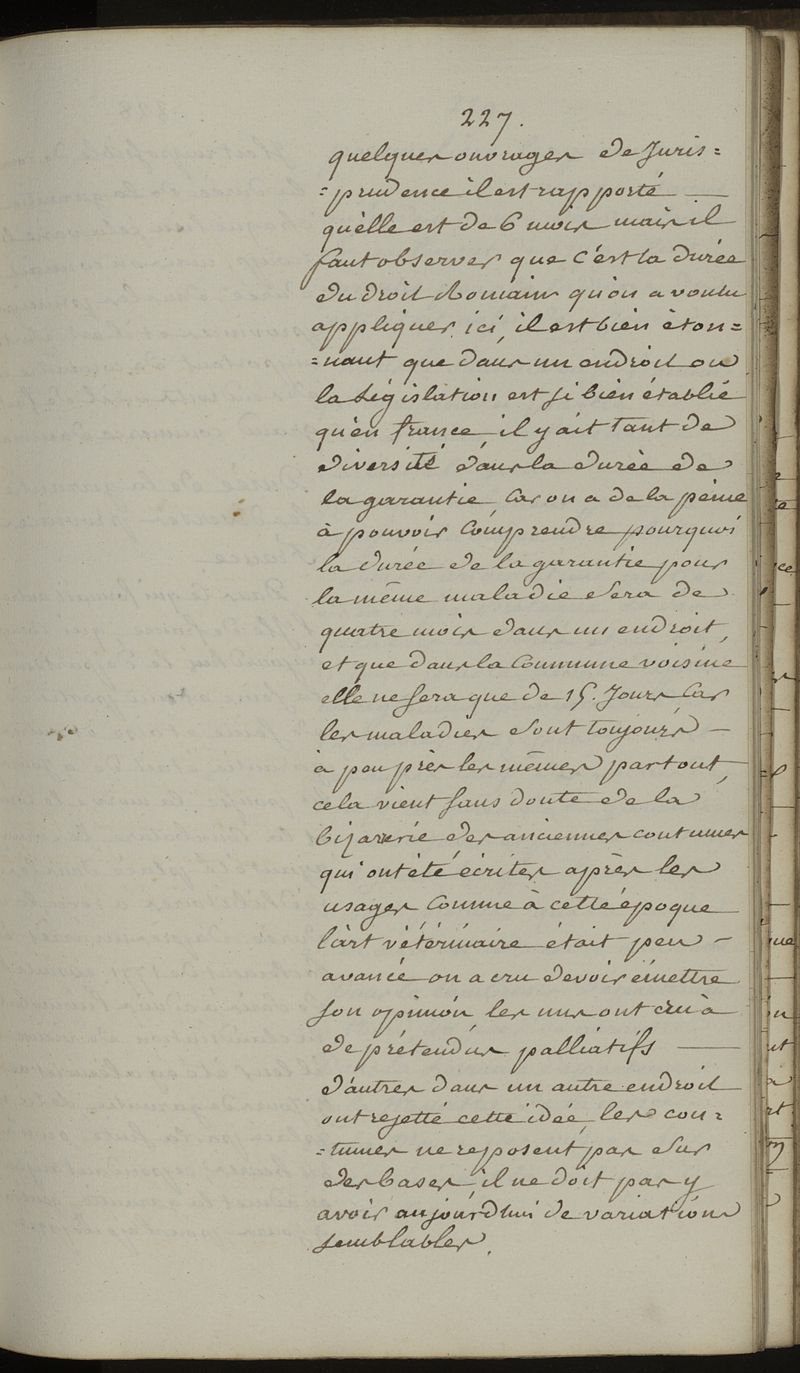 227.
quelques ouvrages de Juris=
=prudence il est rapporté
qu'elle est de 6 mois mais il
faut observer que c'est la durée
du droit Romain qu'on a voulu
appliquer ici, il est bien éton=
=nant que dans un endroit ou
la Législation est si bien établie
qu'en france, il y ait tant de
diversité dans la durée de
la garantie Car on a de la peine
à pouvoir Comprendre pourquoi
la durée de la garantie pour
la même maladie Sera de
quatre mois dans un endroit,
et que dans la Commune voisine
elle ne Sera que de 15. Jours Car
les maladies Sont toujours
à peu près les mêmes partout,
cela vient Sans doute de la
bizarerie des anciennes coutumes
qui ont été écrites après les
usages Comme à cette époque
l'art vétérinaire était peu
avancé on a cru devoir émettre
Son opinion les uns ont cru à
de prétendus palliatifs
d'autres dans un autre endroit
ont rejetté cette idée, les cou=
=tumes ne reposent pas Sur
des bases, il ne doit pas y
avoir aujourd'hui de variations
Semblables.